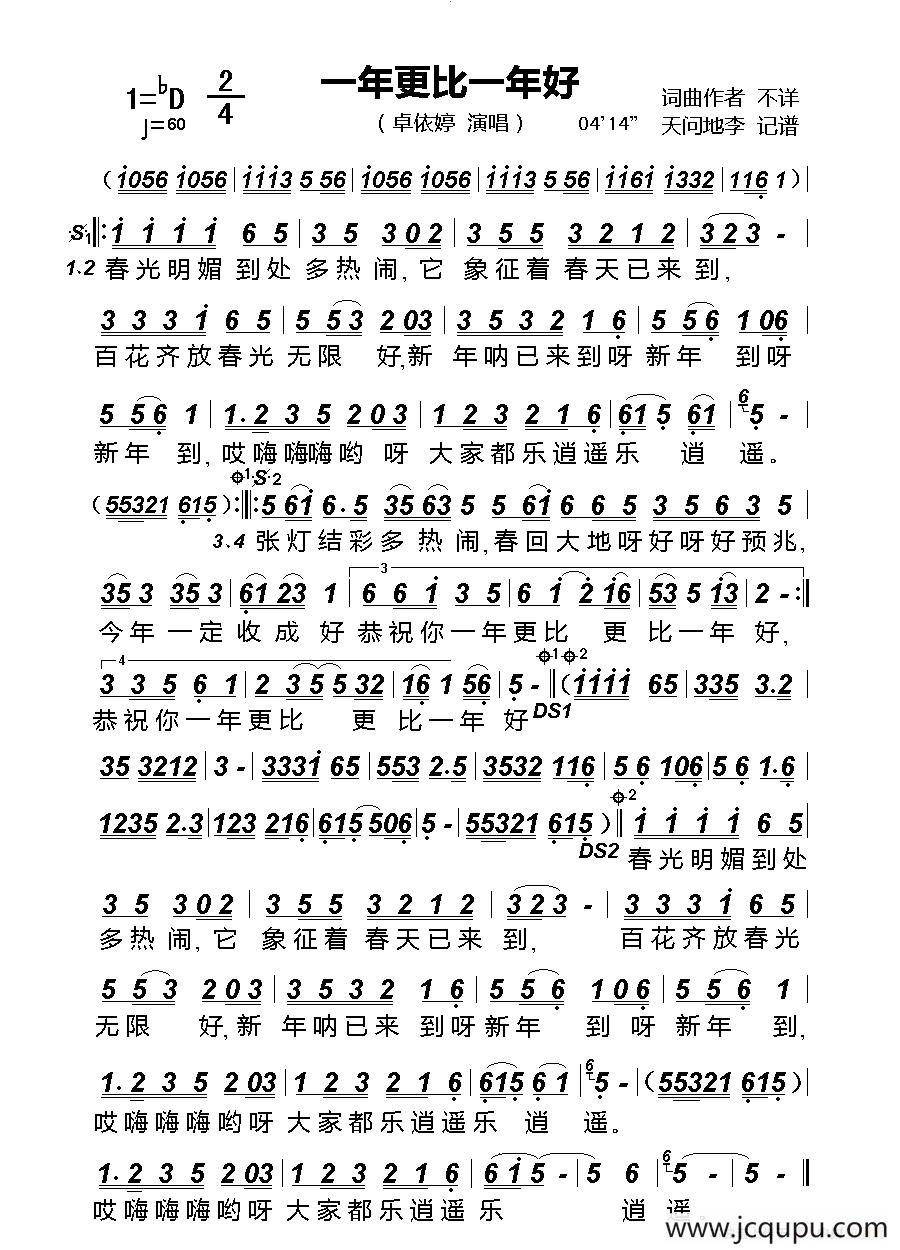 一年更比一年好
1=♭D 2/4
♩=60
（卓依婷 演唱） 04'14”
词曲作者 不详
天问地李 记谱
（i056 i056|iii3 5 56|i056 i056|iii3 5 56|ii6i i332|116 1）|
S1‖: i i i i 6 5|3 5 3 0 2|3 5 5 3 2 1 2|3 2 3 -|
1.2 春光明媚 到处 多热 闹,它 象征着 春天已来 到,
3 3 3 i 6 5|5 5 3 2 03|3 5 3 2 1 6|5 5 6 1 06|
百花齐放春光 无限 好,新 年呐已来到呀 新年 到呀
5 5 6 1|1. 2 3 5 2 0 3|1 2 3 2 1 6|61 5 61|6 5 -|
新年 到,哎嗨嗨嗨哟 呀 大家都乐逍遥乐 逍 遥。
（55321 615）:‖: 5 6i 6. 5 35 63|5 5 6i 6 6 5 3 5 6 3 5|
⊕1 S2
3.4 张灯结彩多 热 闹,春回大地呀好呀好预兆,
35 3 35 3|61 23 1|3 6 6 i 3 5|6 i 2 i6|53 5 i3|2 - :‖
今年 一定 收成 好 恭祝你一年更比 更 比一年 好,
4 3 3 5 6 1|2 3 5 5 32|16 1 56|5 -‖（iiii 65|335 3.2|
⊕1⊕2
恭祝你一年更比 更 比一年 好 DS1
35 3212|3 -|333i 65|553 2.5|3532 116|5 6 106|5 6 1.6|
1235 2.3|123 216|615 506|5 -|55321 615）‖ i i i i 6 5|
⊕2
DS2 春光明媚到处
3 5 3 0 2|3 5 5 3 2 1 2|3 2 3 -|3 3 3 i 6 5|
多热 闹,它 象征着 春天已来 到, 百花齐放春光
5 5 3 2 0 3|3 5 3 2 1 6|5 5 6 1 0 6|5 5 6 1|
无限 好,新 年呐已来 到呀新年 到 呀 新年 到,
1. 2 3 5 2 03|1 2 3 2 1 6|615 6 1|6 5 -|（55321 615）|
哎嗨嗨嗨哟呀 大家都乐逍遥乐 逍 遥。
1. 2 3 5 2 03|1 2 3 2 1 6|6 i 5 5 -|5 6|6 5 -|5 -‖
哎嗨嗨嗨哟呀 大家都乐逍遥乐 逍 遥
www.jcqupu.com